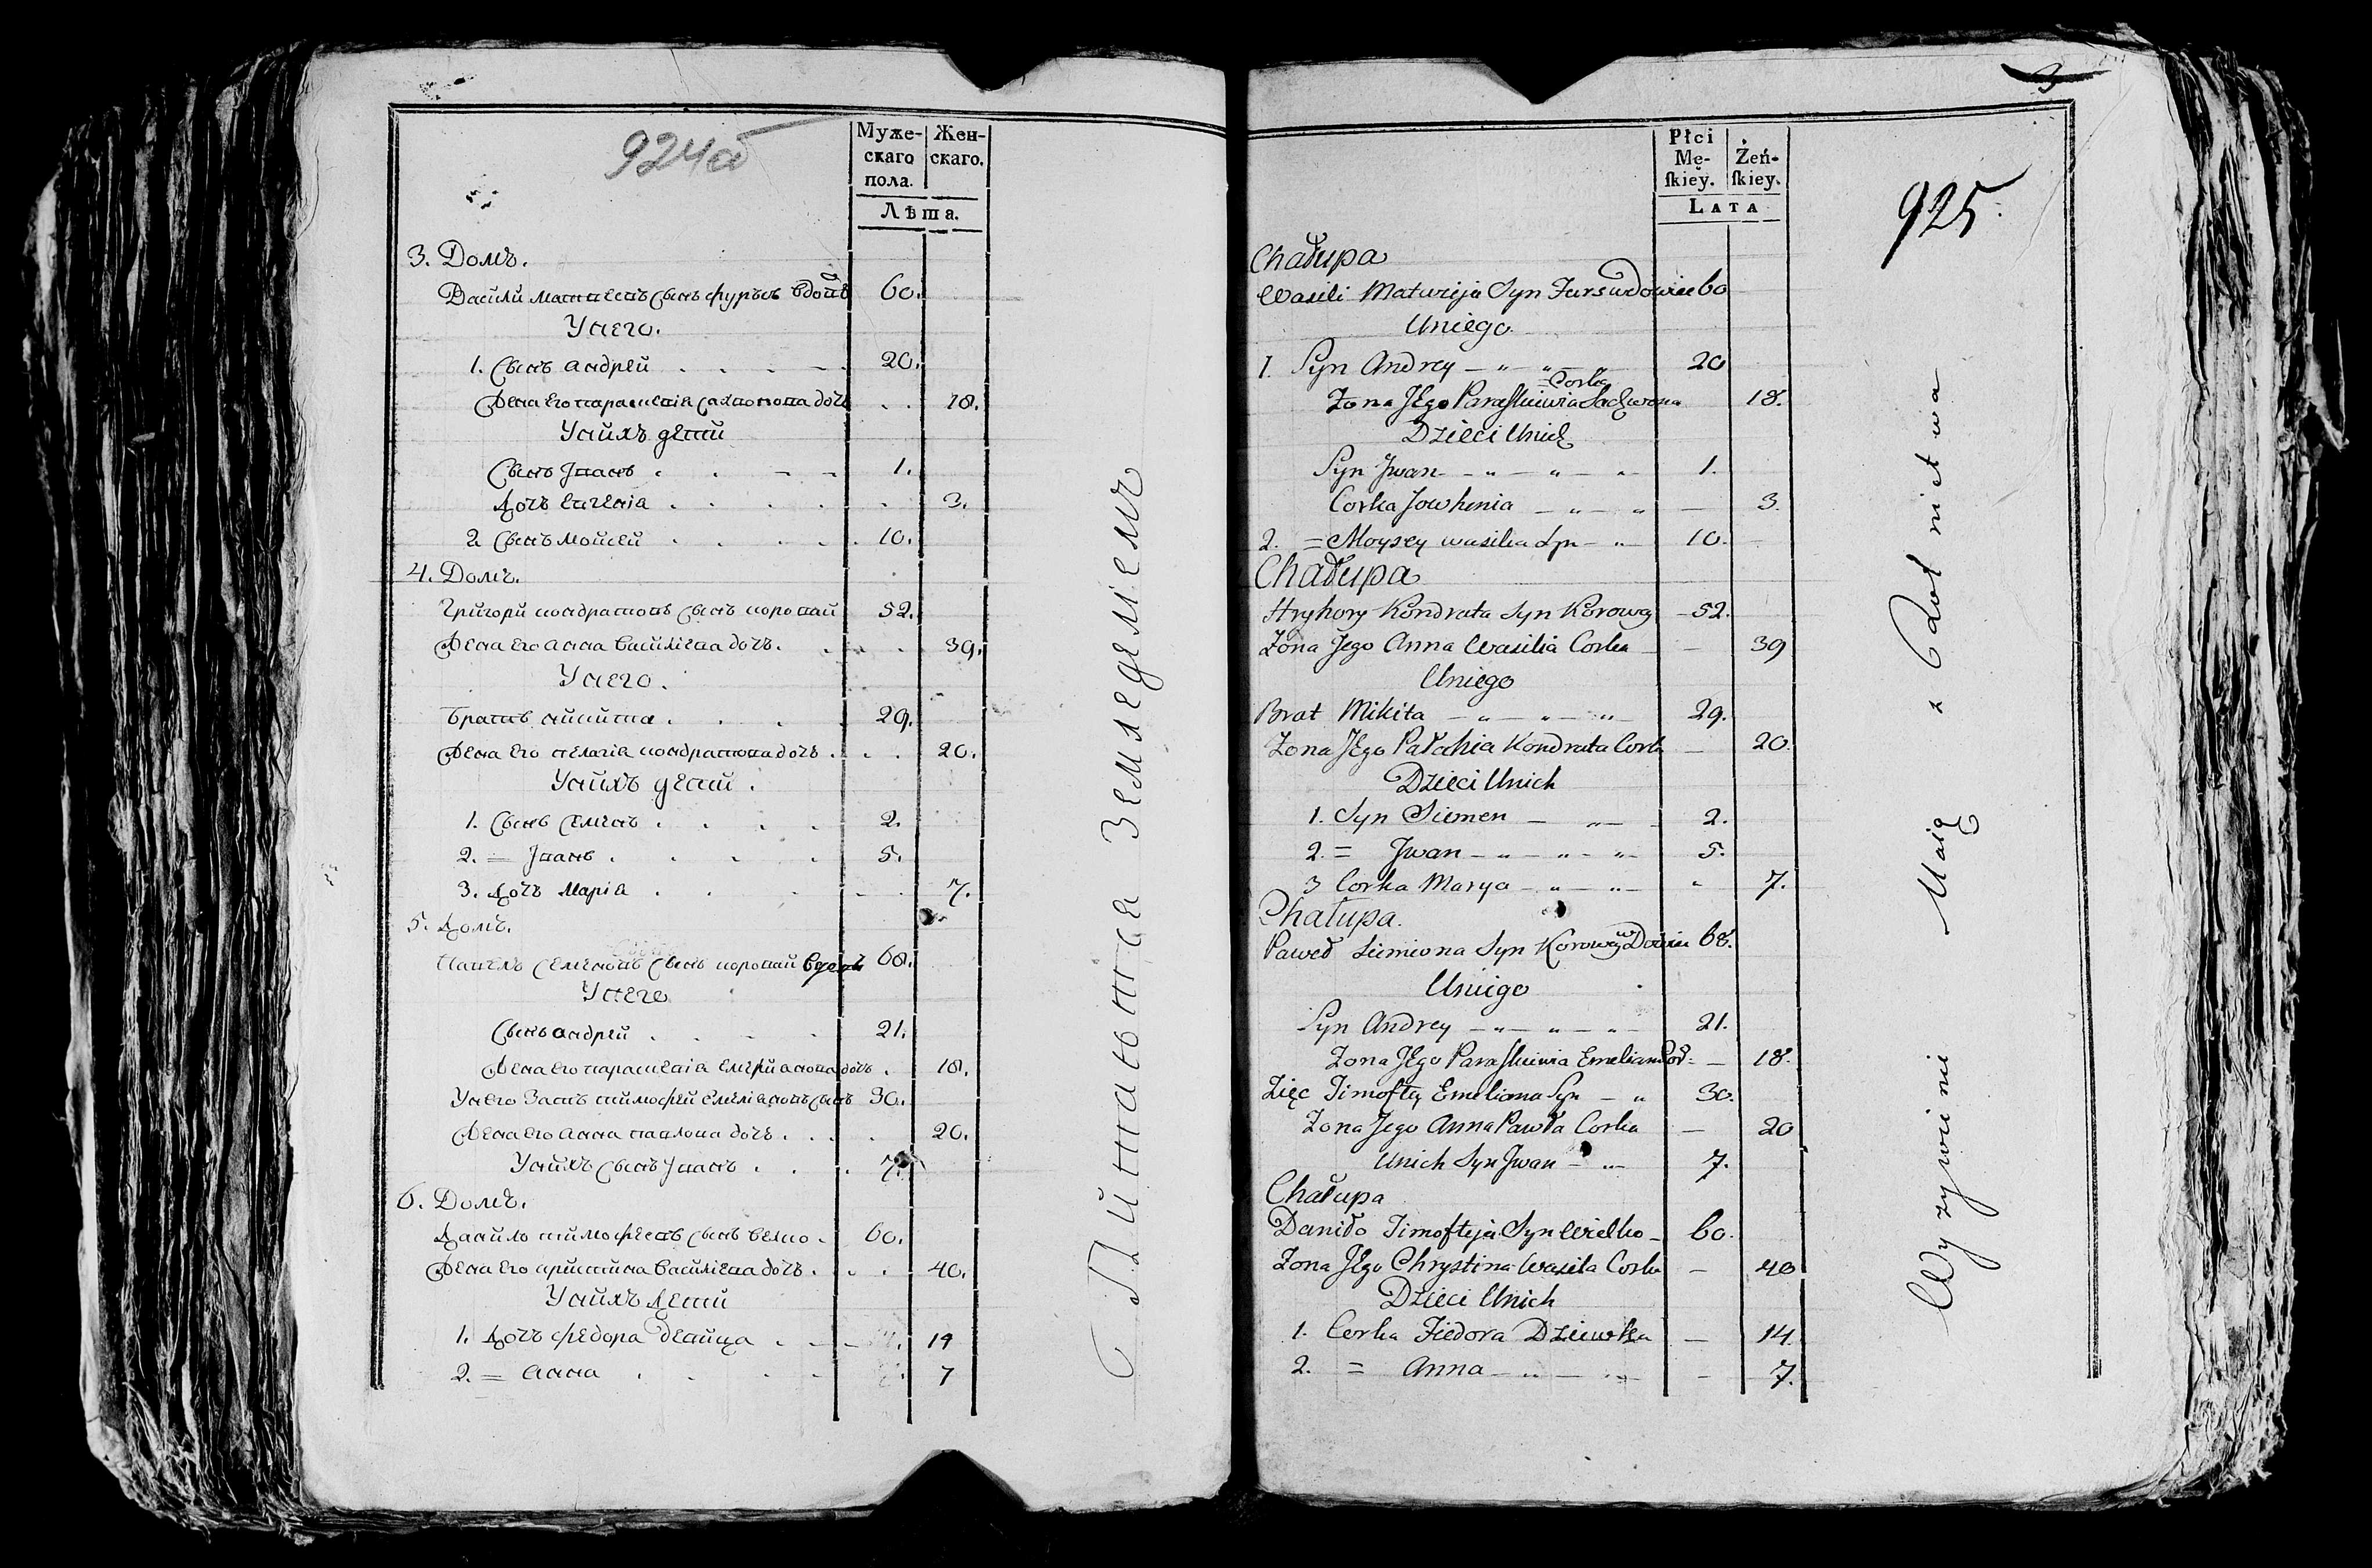 924а
Муже-
скаго
пола.
Жен-
скаго.
Лѣта.
3. Домъ.
Василй Матвеевъ сынъ фурсъ вдовъ 60.
Унего.
1. Сынъ андрей 20.
Жена его параскевіа дочъ 18.
Унйхъ детй
Сынъ Іванъ 1.
Дочъ евгеніа 3.
2. Сынъ мойсей 10.
4. Домъ.
Григорй кондратовъ сынъ коровай 52.
Жена его анна василіева дочъ. 39.
Унего.
братъ никита 29.
Жена его пелагіа кондратова дочъ 20.
Унйхъ детй.
1. Сынъ семенъ 2.
2. = Іванъ 5.
3. Дочъ Маріа 7.
5. Домъ.
Павелъ семеновъ сынъ коровай вдовъ 68.
Унего
Сынъ андрей 21.
Жена его параскевіа дочъ 18.
Унего Зать тимофей емеліановъ сынъ 30.
Жена его анна павлова дочъ 20.
Унйхъ сынъ Іванъ 7.
6. Домъ.
Данило тимофеевъ сынъ велко 60.
Жена его христина василіева дочъ 40.
Унйхъ детй
1. Дочъ федора девйца 14
2. = анна 7
Питаютса Земледелиемъ
3
925
Płci
Mę-
skiey.
Żeń-
skiey.
LATA
Chałupa
Wasili Matwija Syn Furs wdowiec 60
Uniego
1. Syn Andrey 20
Zona Jego Paraskiewia Corka 18.
Dzieci Unich
Syn Jwan 1.
Corka Jowhenia 3.
2. = Moysey wasila Syn 10.
Chałupa
Hryhory Kondrata Syn Koroway 52.
Zona Jego Anna Wasilia Corka 39
Uniego
Brat Mikita 29.
Zona Jego Pałahia Kondrata Corka 20.
Dzieci Unich
1. Syn Siemen 2.
2. = Jwan 5.
3 Corka Marya 7.
Chałupa.
Paweł Siemiona Syn Koroway wDowiec 68.
Uniego
Syn Andrey 21.
Zona Jego Paraskiewia Emeliana 18.
Zięc Timoftey Emeliana Syn 30.
Zona Jego Anna Pawła Corka 20
Unich Syn Jwan 7.
Chałupa
Daniło Timofteja Syn Wielko 60.
Zona Jego Chrystina Wasila Corka 40
Dzieci Unich
1. Corka Fiedora Dziewka 14.
2. = Anna 7.
Wyzywienie Maią z Rolnictwa